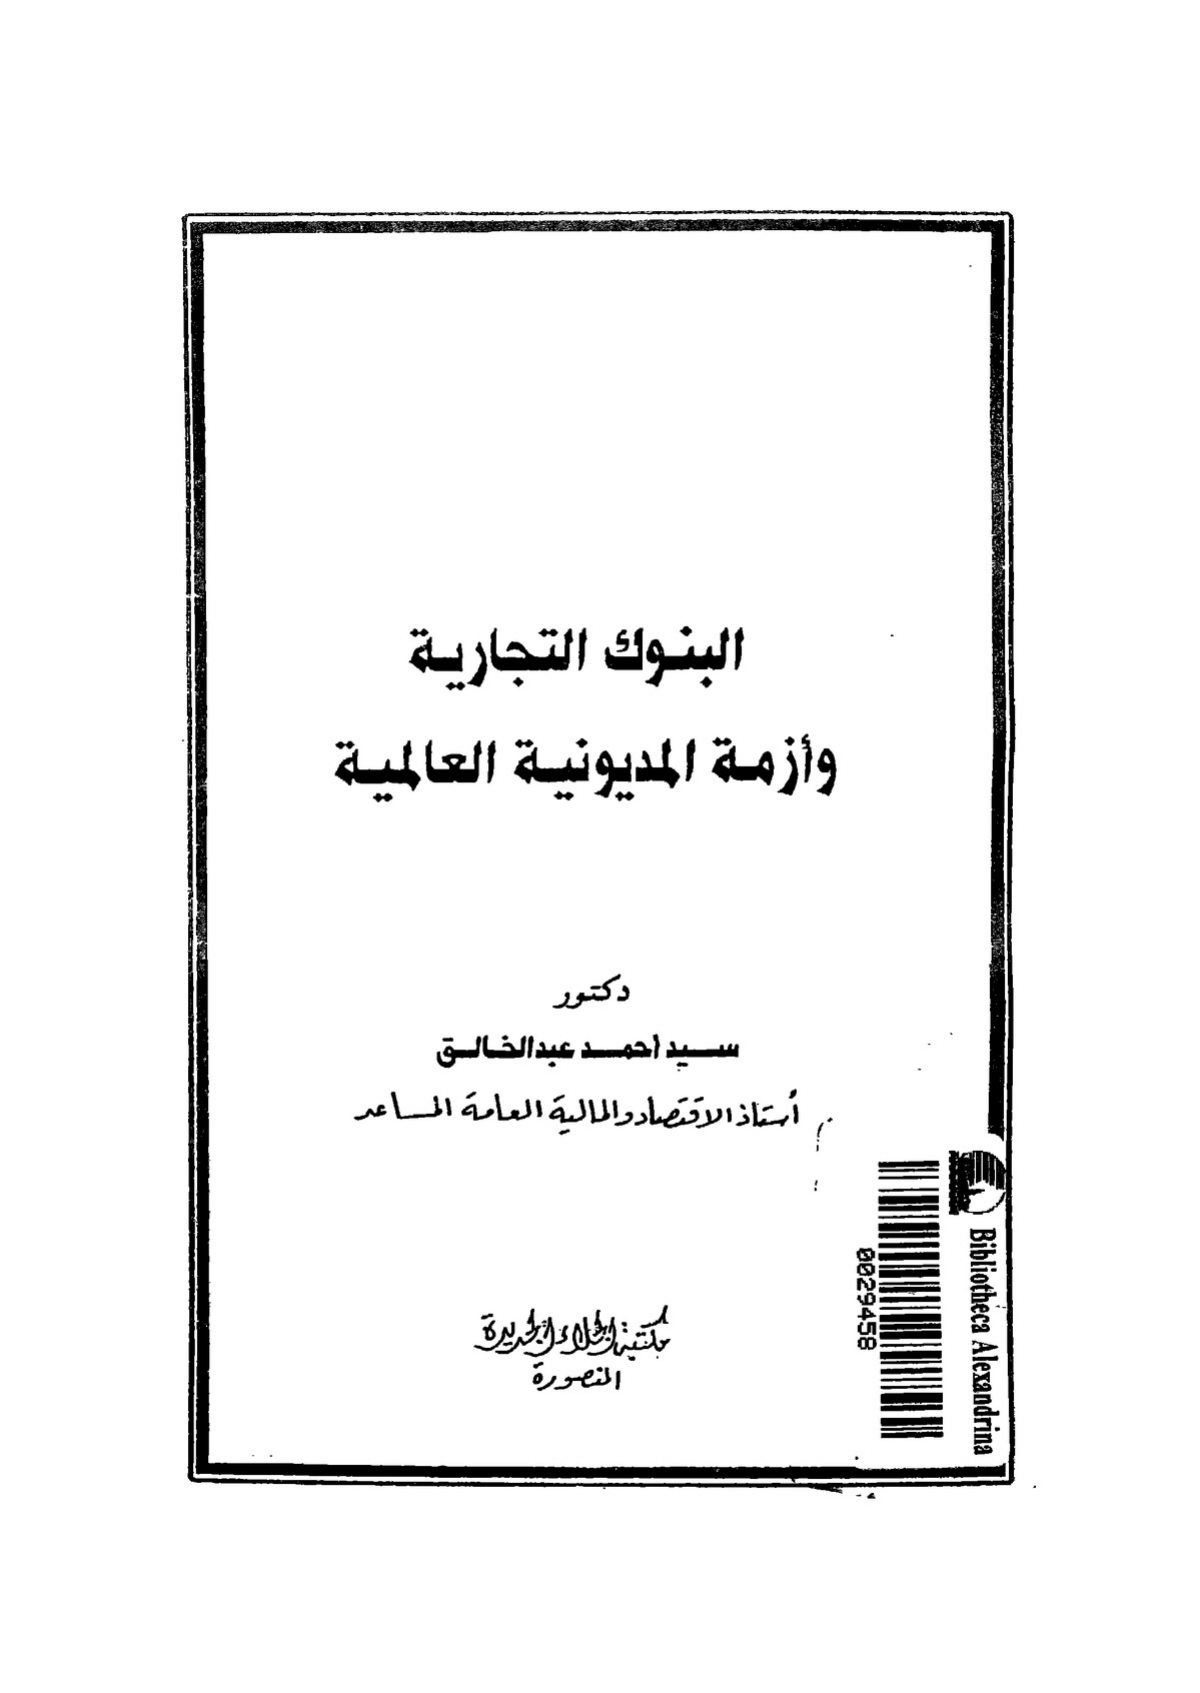 البنوك التجارية
وأزمة المديونية العالمية
دكتور
سيد أحمد عبدالخالق
أستاذ الاقتصاد والمالية العامة المساعد
مكتبة الجلاء الجديدة
المنصورة
0029458
Bibliotheca Alexandrina